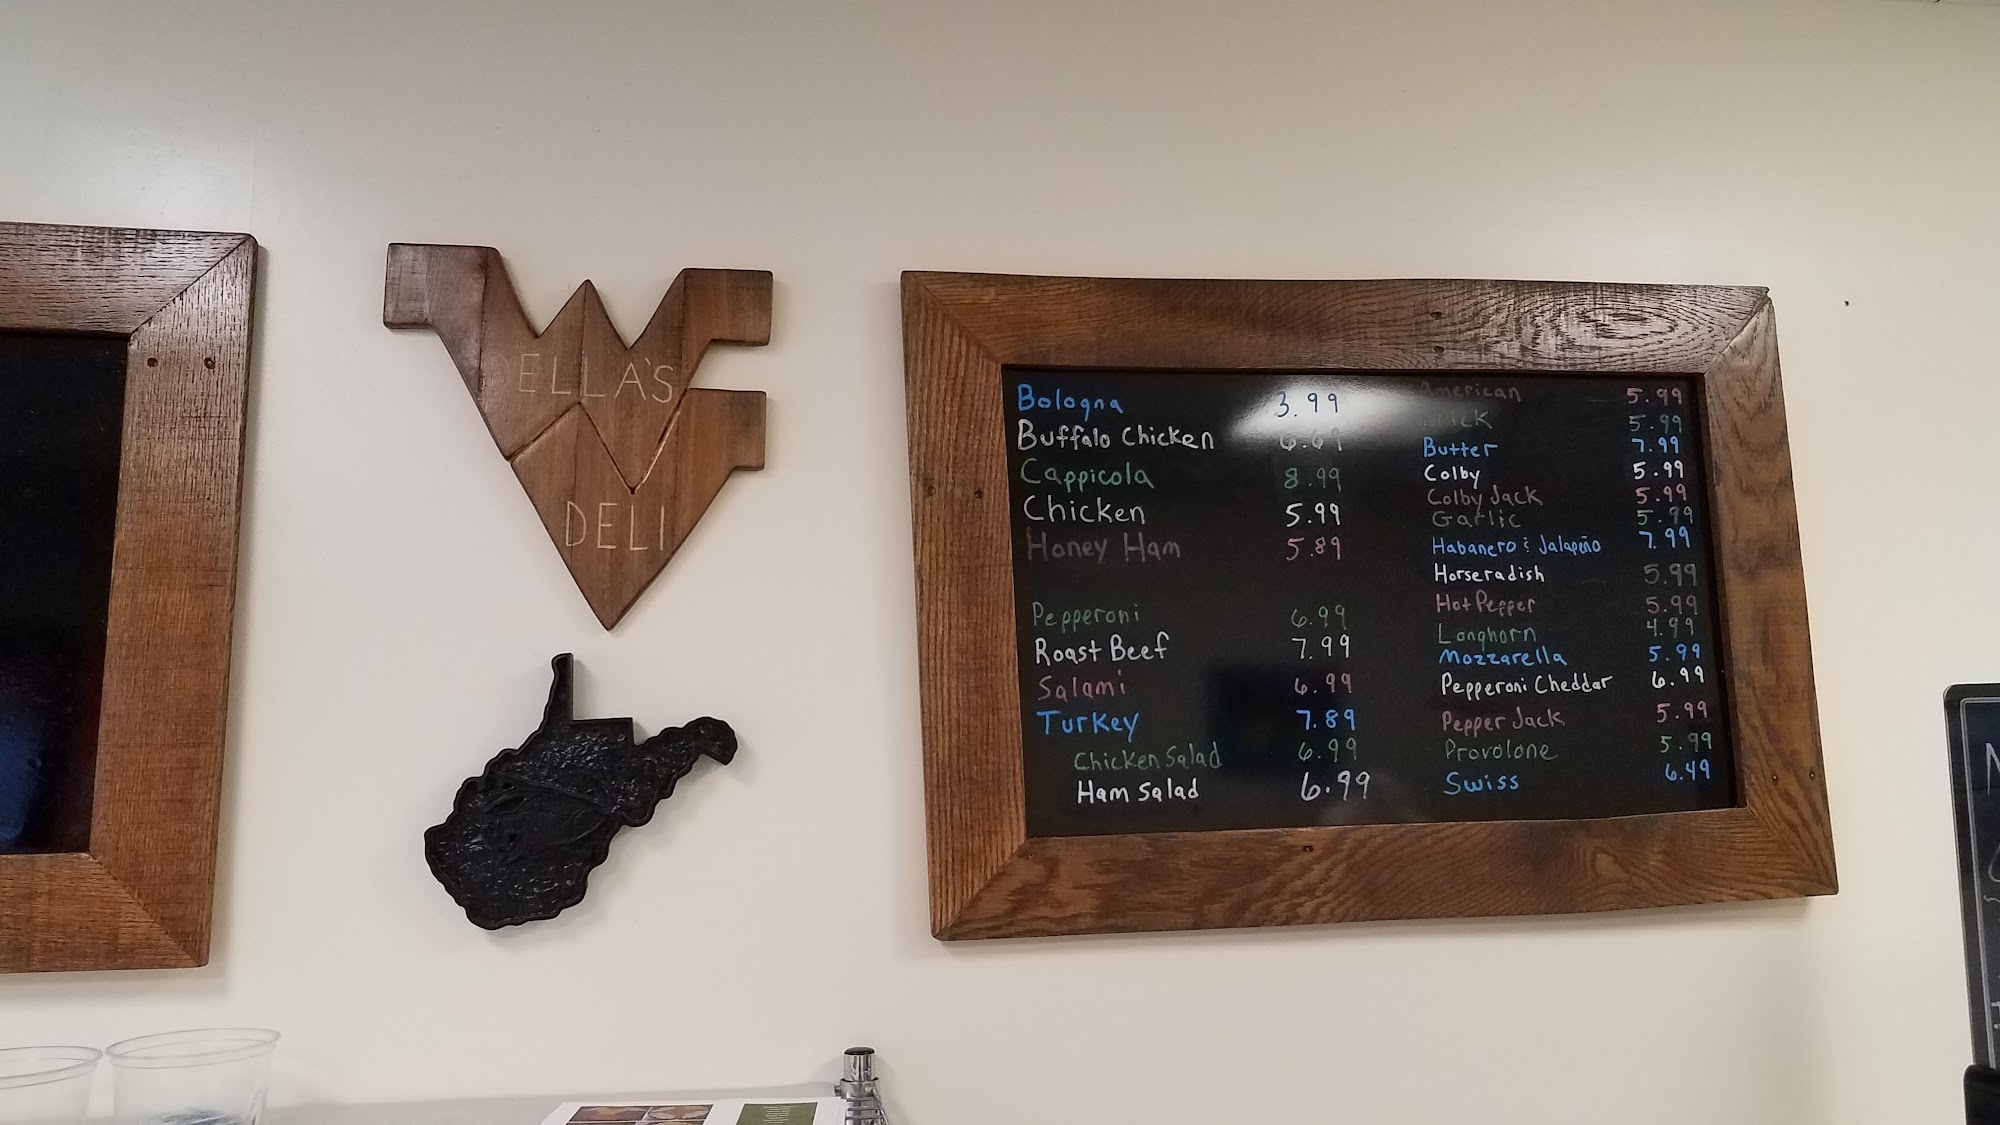 DELLA'S
DELI
Bologna 3.99
Buffalo Chicken 6.69
Cappicola 8.99
Chicken 5.99
Honey Ham 5.89
Pepperoni 6.99
Roast Beef 7.99
Salami 6.99
Turkey 7.89
Chicken Salad 6.99
Ham Salad 6.99
American 5.99
5.99
Butter 7.99
Colby 5.99
Colby Jack 5.99
Garlic 5.99
Habanero & Jalapeño 7.99
Horseradish 5.99
Hot Pepper 5.99
Longhorn 4.99
Mozzarella 5.99
Pepperoni Cheddar 6.99
Pepper Jack 5.99
Provolone 5.99
Swiss 6.49